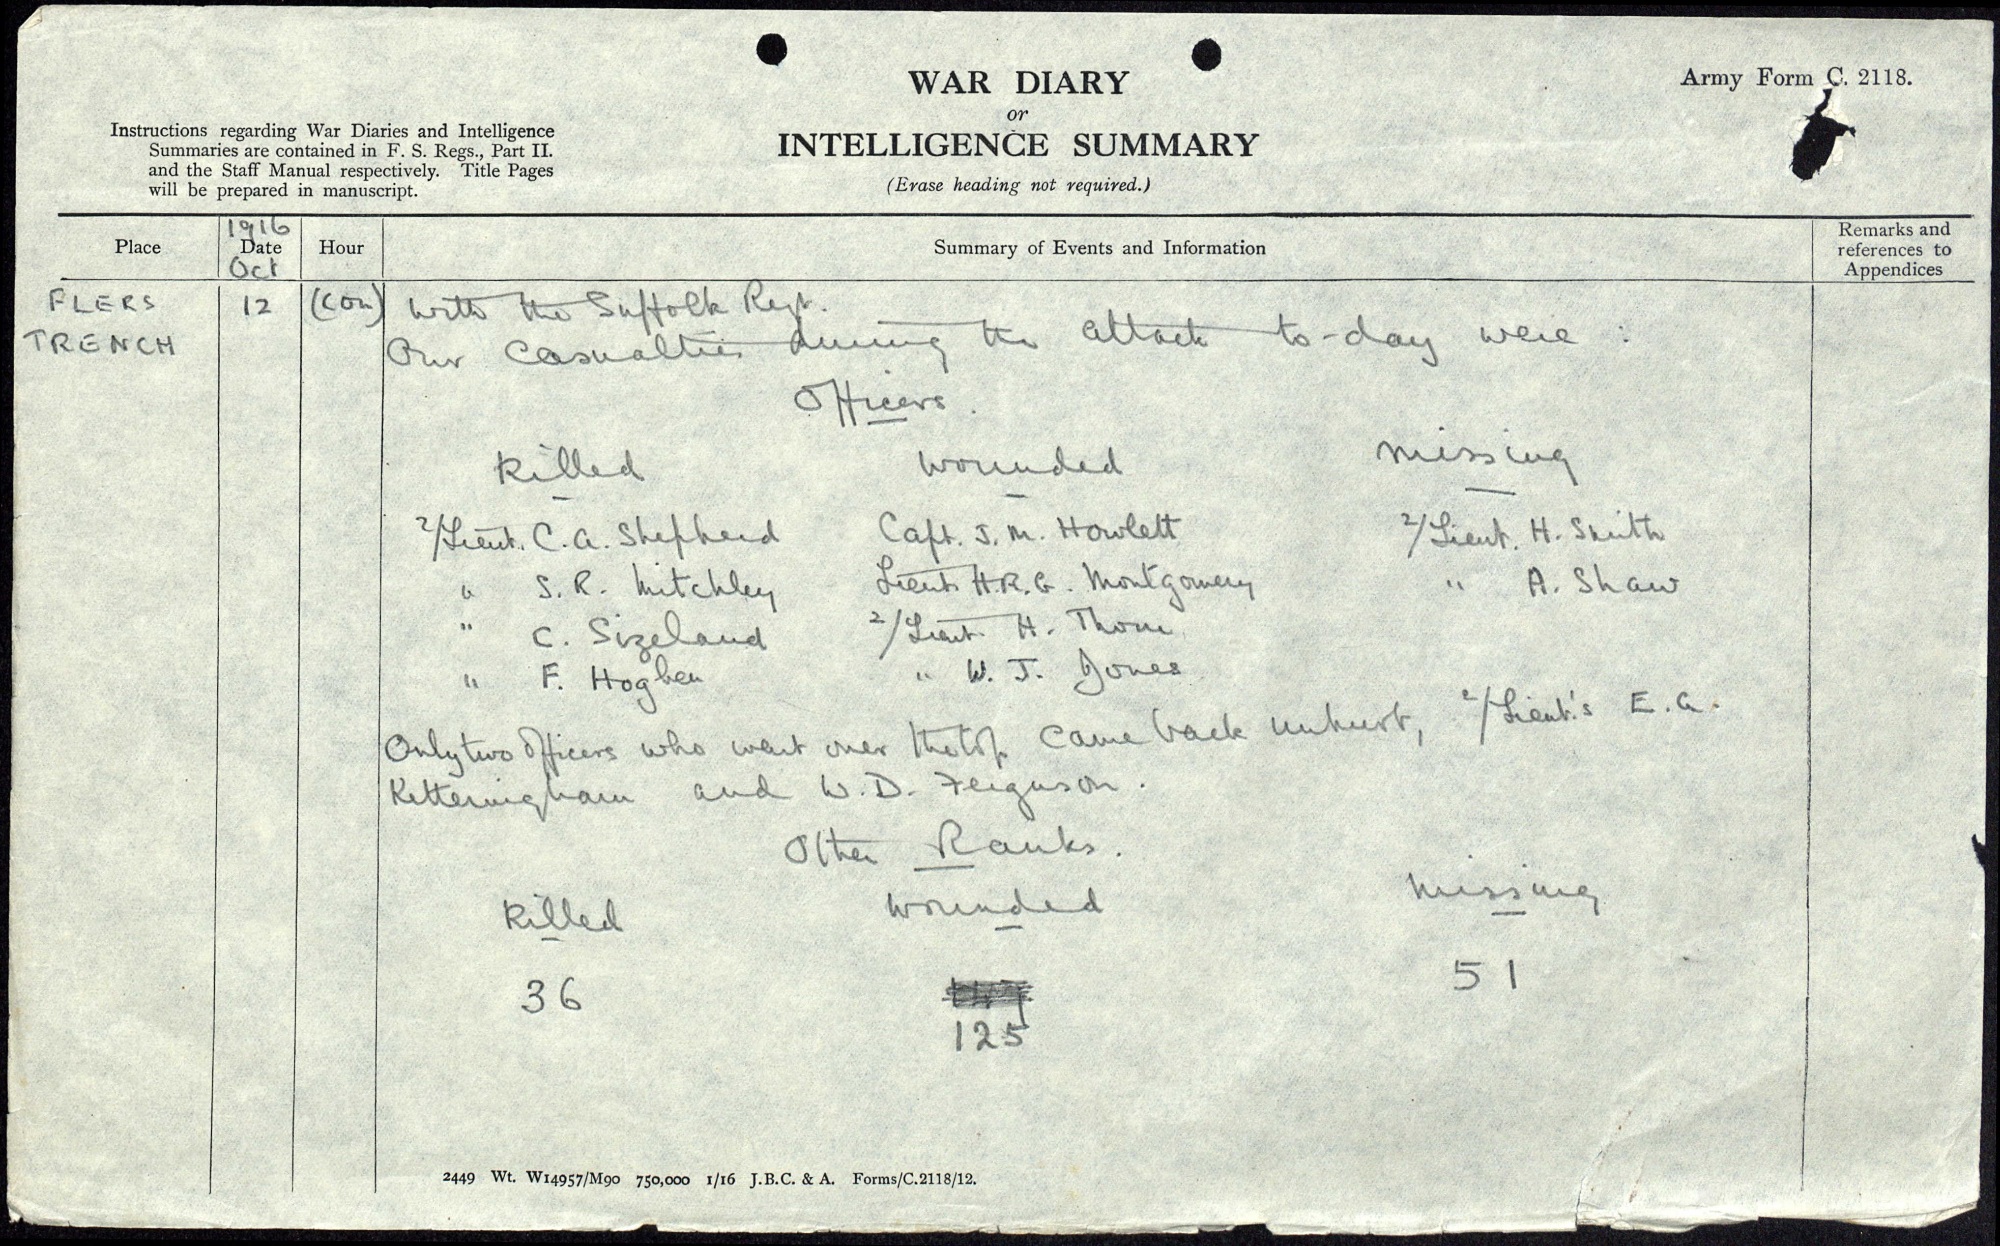 WAR DIARY
or
INTELLIGENCE SUMMARY
(Erase heading not required.)
Army Form C. 2118.
Instructions regarding War Diaries and Intelligence
Summaries are contained in F. S. Regs., Part II.
and the Staff Manual respectively. Title Pages
will be prepared in manuscript.
Place
1916
Date
Oct
Hour
Summary of Events and Information
Remarks and
references to
Appendices
FLERS
TRENCH
12
(con)
with the Suffolk Regt.
Our casualties during the attack to-day were :
Officers.
Killed wounded missing
2/Lieut. C.A. Shepherd Capt. J.M. Howlett 2/Lieut. H. Smith
" S.R. Mitchley Lieut H.R.G. Montgomery " A. Shaw
" C. Sizeland 2/Lieut. H. Thorne
" F. Hogben " W. J. Jones
Only two officers who went over the top came back unhurt, 2/Lieut.'s E.G.
Ketteringham and W.D. Ferguson.
Other Ranks.
Killed wounded missing
36 51
125
2449 Wt. W14957/M90 750,000 1/16 J.B.C. & A. Forms/C.2118/12.